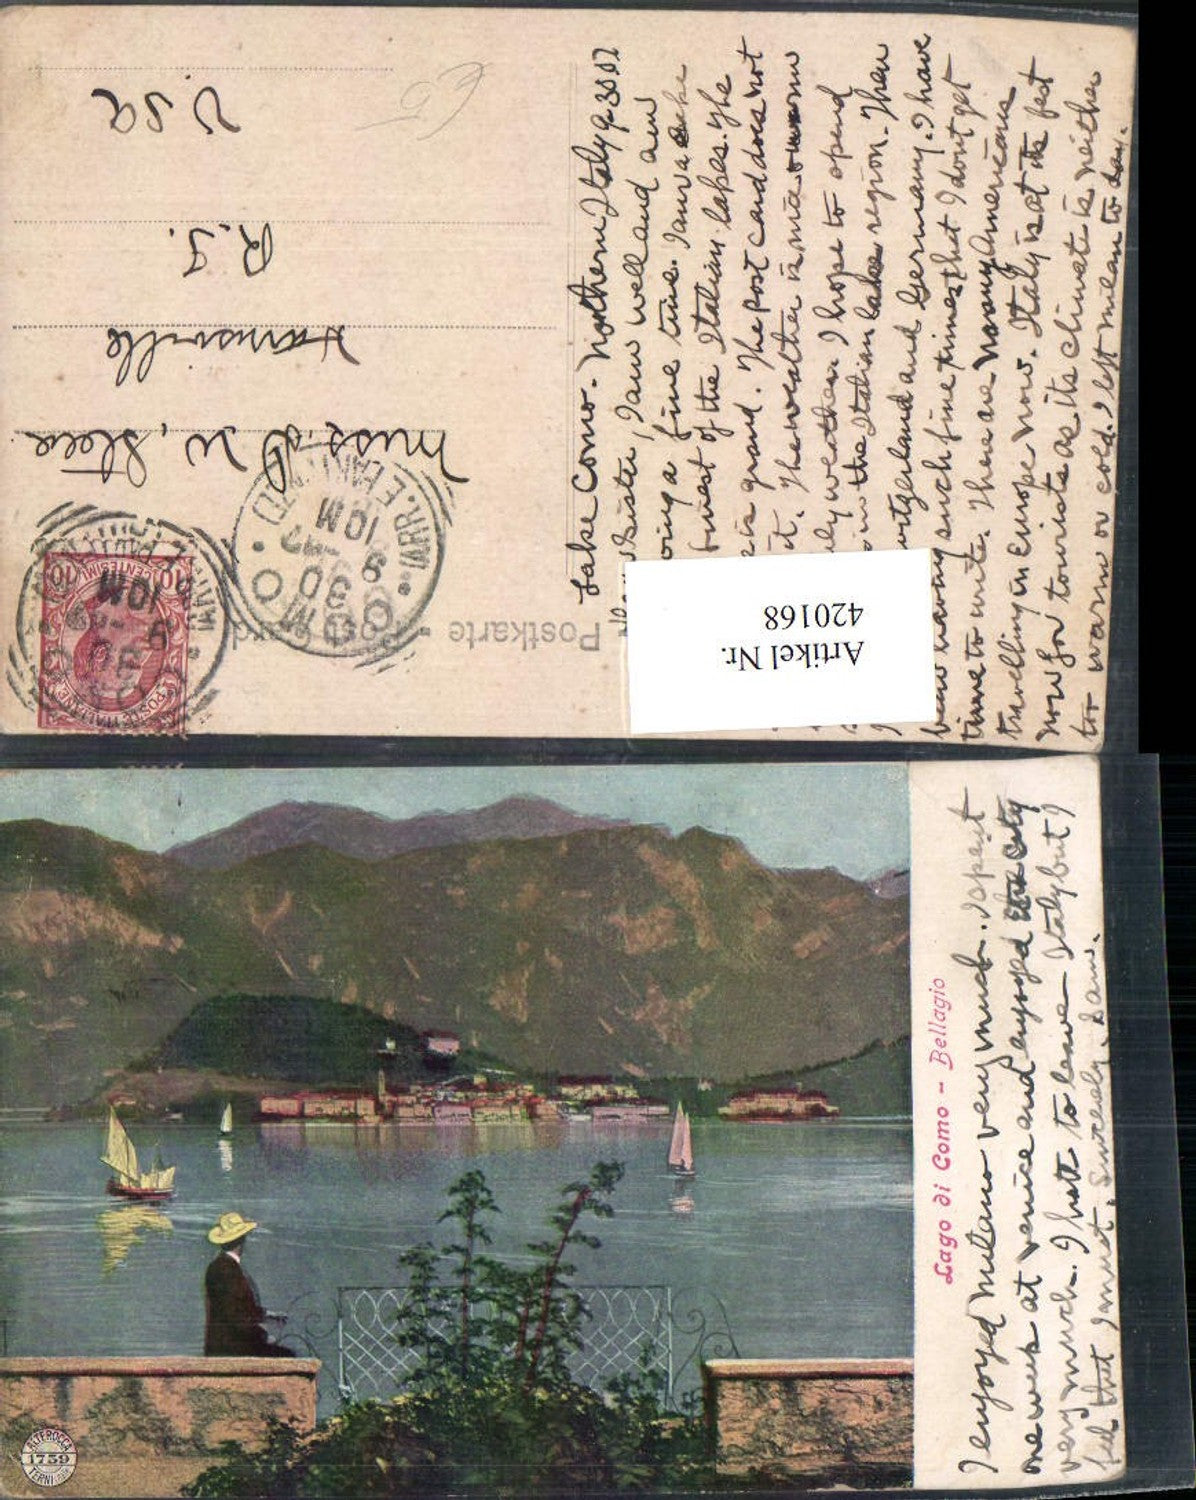 Lake Como. Northern Italy 9 30 07
Sister, I am well and am
a fine time. I am
finest of the Italian lakes. The
is grand. The post card does not
it. The weather is nice
weather. I hope to spend
in the Italian lake region. Then
and Germany. I have
been having such fine times that I dont get
time to write. There are many Americans
travelling in Europe now. Italy is at its best
now for tourists as its climate is neither
too warm or cold. I left Milan to day.
Miss. D. W. Steere
Harrisville
R.I.
U.S.A.
Postkarte • Post card
POSTE ITALIANE
10 CENTESIMI 10
COMO
30
9
10M
Artikel Nr.
420168
Lago di Como - Bellagio
I enjoyed Milano very much. I spent
one week at Venice and enjoyed the city
very much. I hate to leave Italy but I
feel that I must. Sincerely. Sam.
ALTEROCCA
1739
TERNI